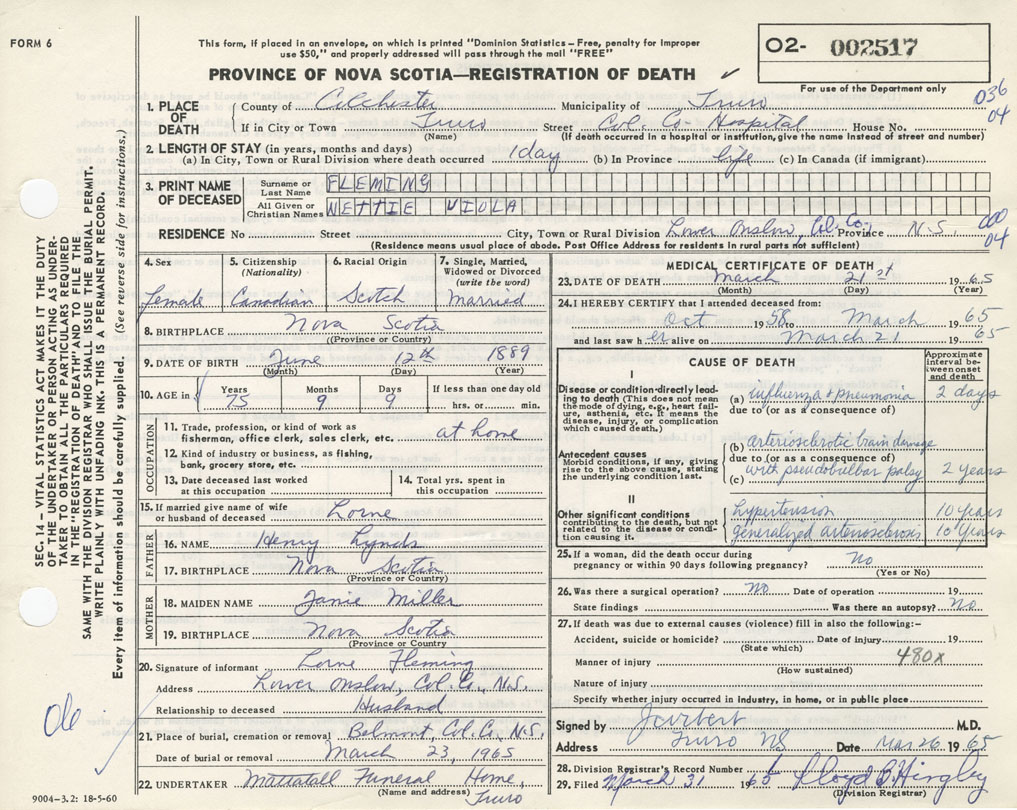 FORM 6
This form, if placed in an envelope, on which is printed "Dominion Statistics – Free, penalty for improper
use $50," and properly addressed will pass through the mail "FREE"
PROVINCE OF NOVA SCOTIA—REGISTRATION OF DEATH ✓
O2- 002517
For use of the Department only
036
04
1. PLACE OF DEATH
County of Colchester Municipality of Truro
If in City or Town Truro Street Col. Co Hospital House No.
(Name) (If death occurred in a hospital or institution, give the name instead of street and number)
2. LENGTH OF STAY (in years, months and days)
(a) In City, Town or Rural Division where death occurred 1 day (b) In Province life (c) In Canada (if immigrant)
3. PRINT NAME OF DECEASED
Surname or Last Name FLEMING
All Given or Christian Names NETTIE VIOLA
RESIDENCE No Street City, Town or Rural Division Lower Onslow, Col. Co. Province N.S.
000
04
(Residence means usual place of abode. Post Office Address for residents in rural parts not sufficient)
4. Sex
Female
5. Citizenship
(Nationality)
Canadian
6. Racial Origin
Scotch
7. Single, Married,
Widowed or Divorced
(write the word)
Married
8. BIRTHPLACE Nova Scotia
(Province or Country)
9. DATE OF BIRTH June 12th 1889
(Month) (Day) (Year)
10. AGE in
Years Months Days If less than one day old
75 9 9 hrs. or min.
OCCUPATION
11. Trade, profession, or kind of work as
fisherman, office clerk, sales clerk, etc. at home
12. Kind of industry or business, as fishing,
bank, grocery store, etc.
13. Date deceased last worked
at this occupation
14. Total yrs. spent in
this occupation
15. If married give name of wife
or husband of deceased Lorne
FATHER
16. NAME Henry Lynds
17. BIRTHPLACE Nova Scotia
(Province or Country)
MOTHER
18. MAIDEN NAME Janie Miller
19. BIRTHPLACE Nova Scotia
(Province or Country)
20. Signature of informant Lorne Fleming
Address Lower Onslow, Col. Co., N.S.
Relationship to deceased Husband
21. Place of burial, cremation or removal Belmont, Col. Co., N.S.
Date of burial or removal March 23, 1965
22. UNDERTAKER Mattatall Funeral Home,
(Name and address) Truro
MEDICAL CERTIFICATE OF DEATH
23. DATE OF DEATH March 21st 1965
(Month) (Day) (Year)
24. I HEREBY CERTIFY that I attended deceased from:
Oct 1958 to March 1965
and last saw her alive on March 21 1965
CAUSE OF DEATH
Approximate interval between onset and death
I
Disease or condition directly leading
to death (This does not mean
the mode of dying, e.g., heart failure,
asthenia, etc. It means the
disease, injury, or complication
which caused death.)
(a) influenza + pneumonia 2 days
due to (or as a consequence of)
Antecedent causes
Morbid conditions, if any, giving
rise to the above cause, stating
the underlying condition last.
(b) arteriosclerotic brain damage
due to (or as a consequence of)
(c) with pseudobulbar palsy 2 years
II
Other significant conditions
contributing to the death, but not
related to the disease or condition
causing it.
hypertension 10 years
generalized arteriosclerosis 10 years
25. If a woman, did the death occur during
pregnancy or within 90 days following pregnancy? No
(Yes or No)
26. Was there a surgical operation? No Date of operation 19
State findings Was there an autopsy? No
27. If death was due to external causes (violence) fill in also the following:–
Accident, suicide or homicide? Date of injury 19
(State which)
Manner of injury 480x
(How sustained)
Nature of injury
Specify whether injury occurred in industry, in home, or in public place
Signed by M.D.
Address Truro NS Date Mar 26 1965
28. Division Registrar's Record Number
29. Filed March 31 1965 Lloyd B Hingley
(Division Registrar)
SEC. 14 – VITAL STATISTICS ACT MAKES IT THE DUTY
OF THE UNDERTAKER OR PERSON ACTING AS UNDERTAKER
TO OBTAIN ALL THE PARTICULARS REQUIRED
IN THE "REGISTRATION OF DEATH" AND TO FILE THE
SAME WITH THE DIVISION REGISTRAR WHO SHALL ISSUE THE BURIAL PERMIT.
WRITE PLAINLY WITH UNFADING INK. THIS IS A PERMANENT RECORD.
Every item of information should be carefully supplied. (See reverse side for instructions.)
9004–3.2: 18-5-60